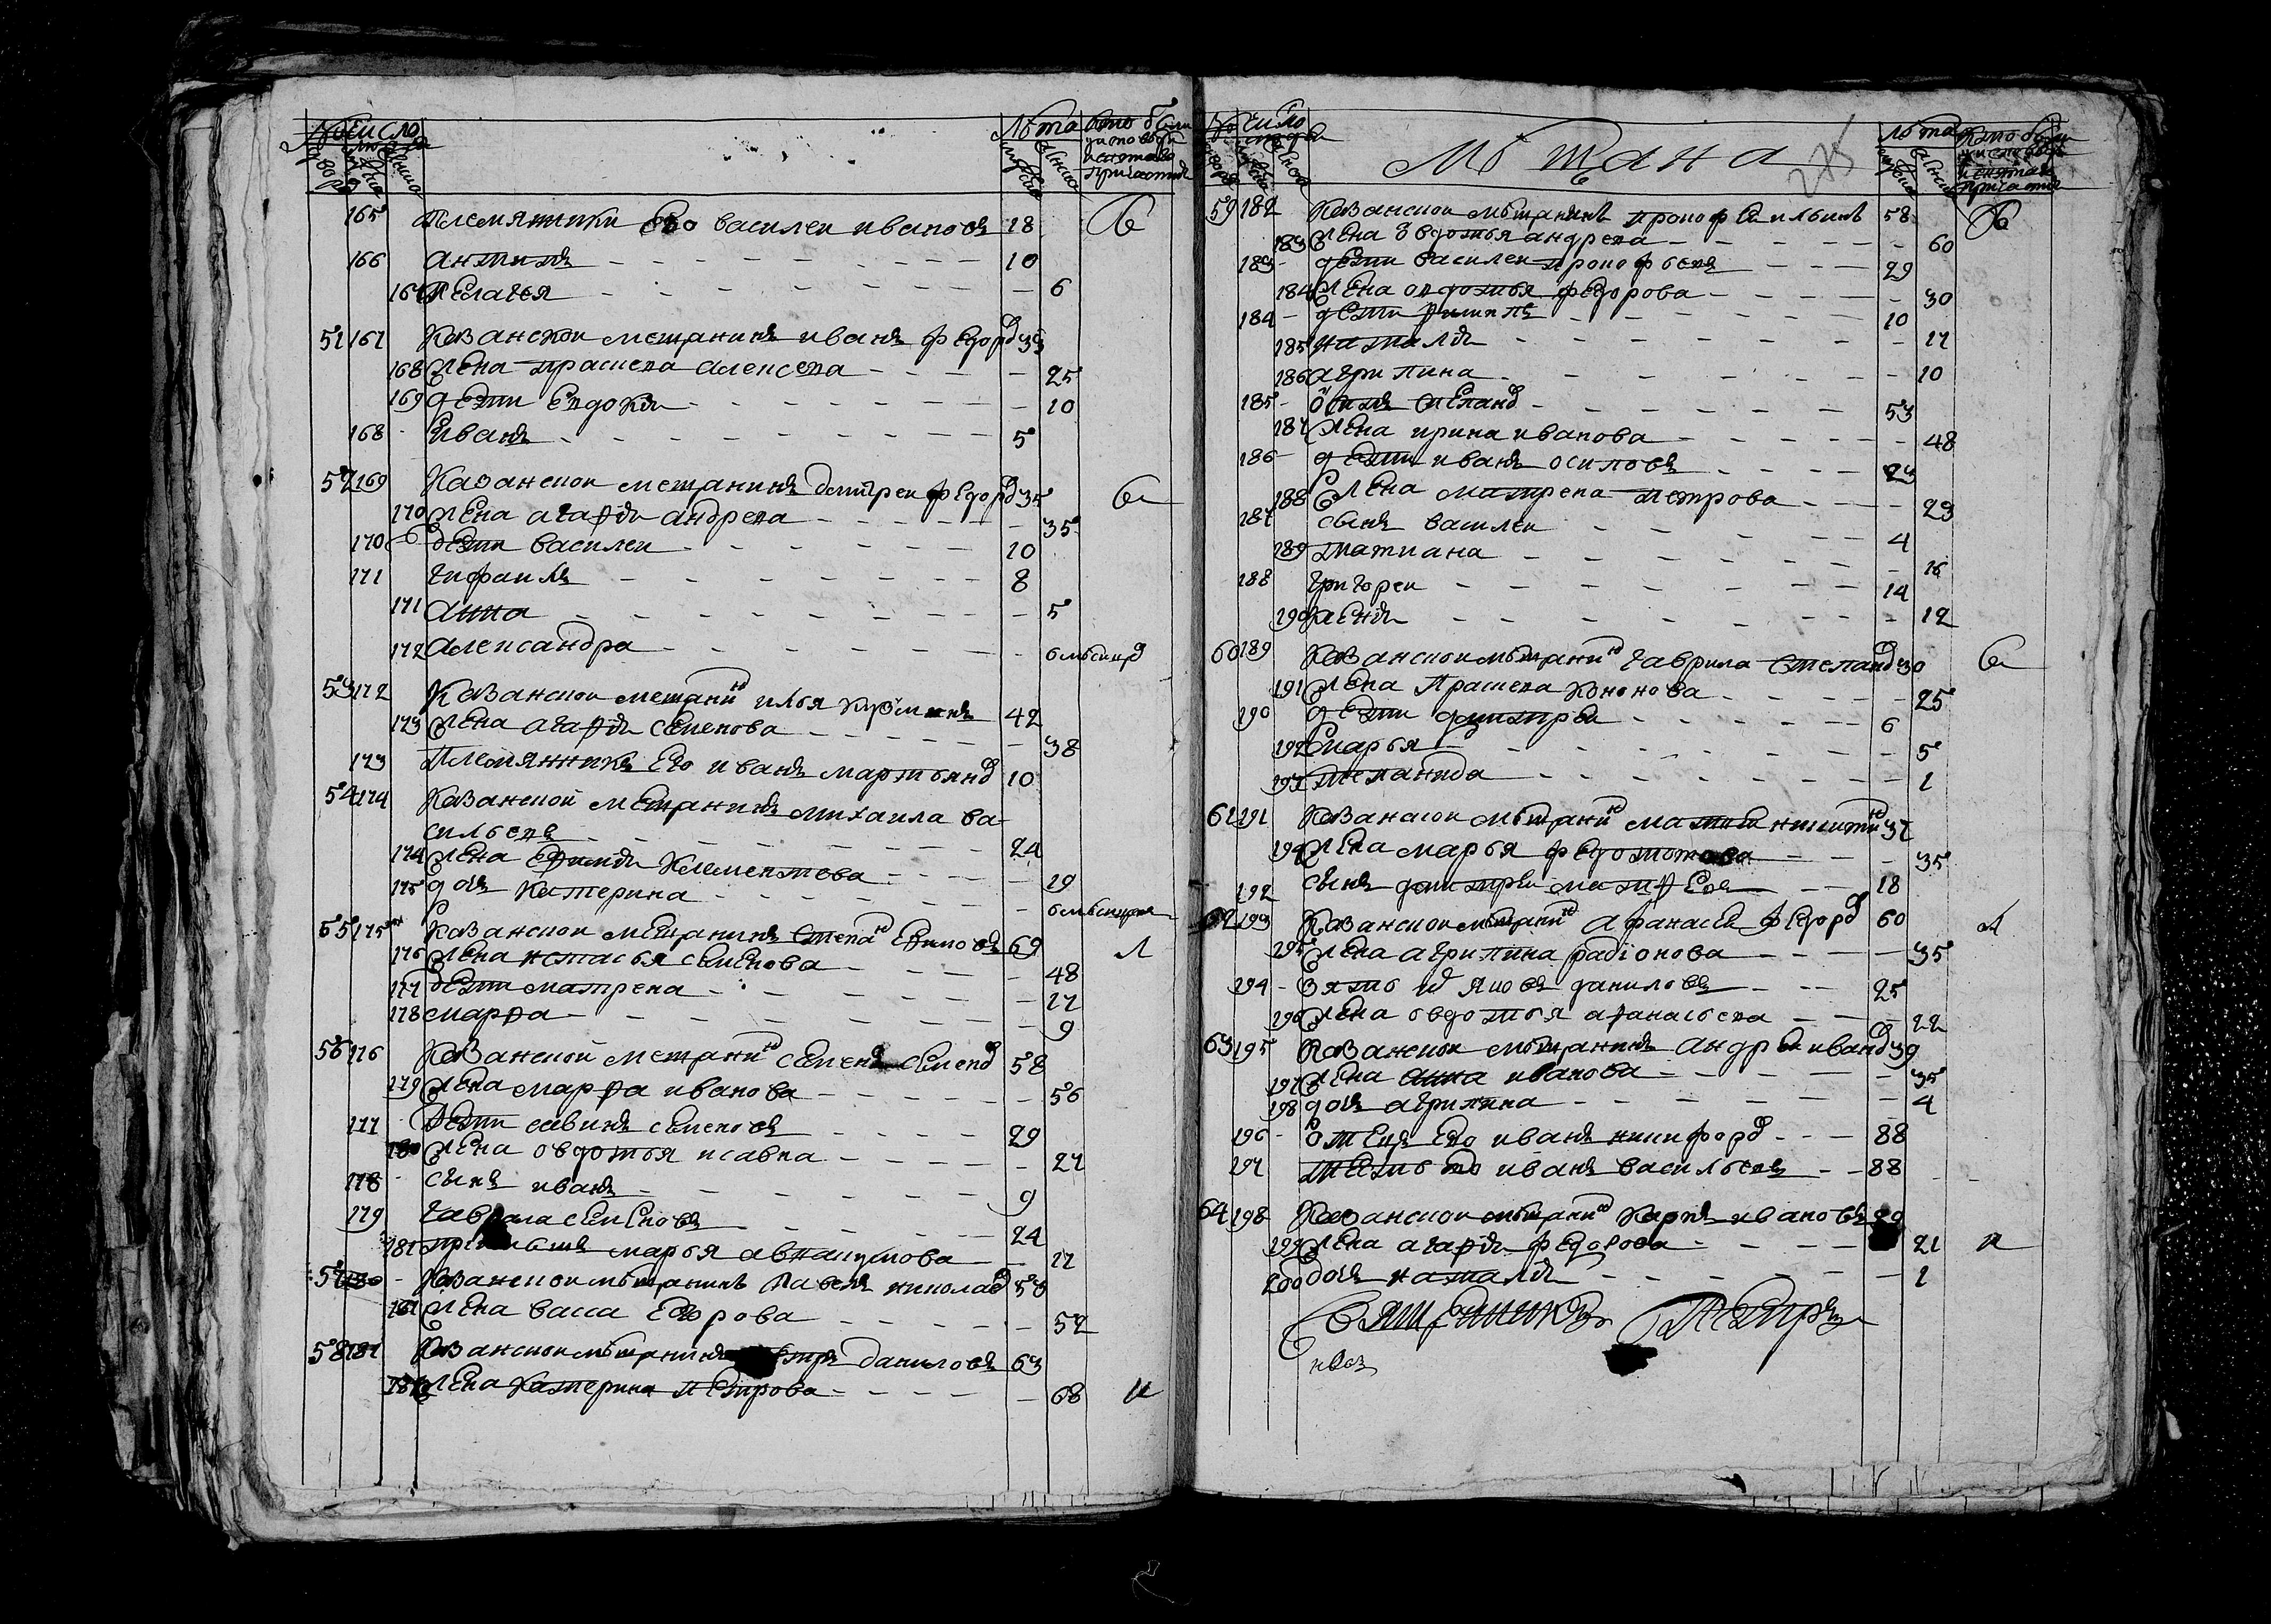 № Число Лѣта Кто были
двора людей мужеска женска у исповеди
мужеска женска и святаго
причастия
165 племянники ево василеи ивановъ 18 б
166 антипъ 10
167 пелагея 6
51 167 Казанскои мещанинъ иванъ федоров 33
168 жена прасковя алексеева 25
169 дети евдокия 10
168 иванъ 5
52 169 Казанскои мещанинъ дмитреи федоров 35 б
170 жена агафия андреева 35
170 дети василеи 10
171 гифаилъ 8
171 анна 5
172 александра 6 мѣсицов
53 172 Казанскои мещанин илья кузминъ 42
173 жена агафия семенова 38
173 Племянникъ его иванъ мартьянов 10
54 174 Казанской мещанинъ михаила ва-
сильевъ 24
174 жена ефимия клементева 19
175 дочь катерина 6 мѣсицов
55 175 Казанскои мещанинъ степан еѳимовъ 69 л
176 жена настасья семенова 48
177 дети матрена 17
178 марѳа 9
56 176 Казанской мещанин семенъ семенов 58
179 жена марѳа иванова 56
177 дети савинъ семеновъ 29
180 жена овдотья исаева 27
178 сынъ иванъ 9
179 гаврила семеновъ 24
181 марья авнакумова 22
57 180 Казанскои мѣщанинъ павелъ николаев 58
181 жена васса егорова 52
58 181 Казанскои мѣщанинъ даниловъ 63
182 жена катерина петрова 68 и
№ Число Мѣщана 275 Лѣта Кто были
людей мужеска женска у исповеди
двора мужеска женска и святаго
причастия
59 182 Казанскои мѣщанинъ прокофеи ильинъ 58 б
183 жена овдотья андреева 60
183 дети василеи прокофьевъ 29
184 жена овдотья федорова 30
184 дети филипъ 10
185 наталия 17
186 агрипина 10
185 осипъ степанов 53
187 жена ирина иванова 48
186 дети иванъ осиповъ 23
188 жена матрена петрова 23
187 сынъ василеи 4
189 татиана 16
188 григореи 14
190 ксения 12
60 189 Казанскои мѣщанин гаврила степанов 30 б
191 жена прасковя кононова 25
190 дети дмитреи 6
192 марья 5
193 степанида 1
61 191 Казанскои мѣщанин матѳеи никитин 37
194 жена марья федотова 35
192 сынъ дмитреи матѳеевъ 18
62 193 Казанскои мѣщанин афанасеи федоров 60 л
195 жена агрипина радіонова 35
194 зять яковъ даниловъ 25
196 жена овдотья аѳанасьева 22
63 195 Казанскои мѣщанинъ андреи иванов 39
197 жена анна иванова 35
198 дочь агрипина 4
196 отецъ его иванъ никифоров 88
197 тесть его иванъ васильевъ 88
64 198 Казанскои мѣщанин карпъ ивановъ
199 жена агафия федорова 21 и
200 дочь наталия 1
Священникъ Петръ